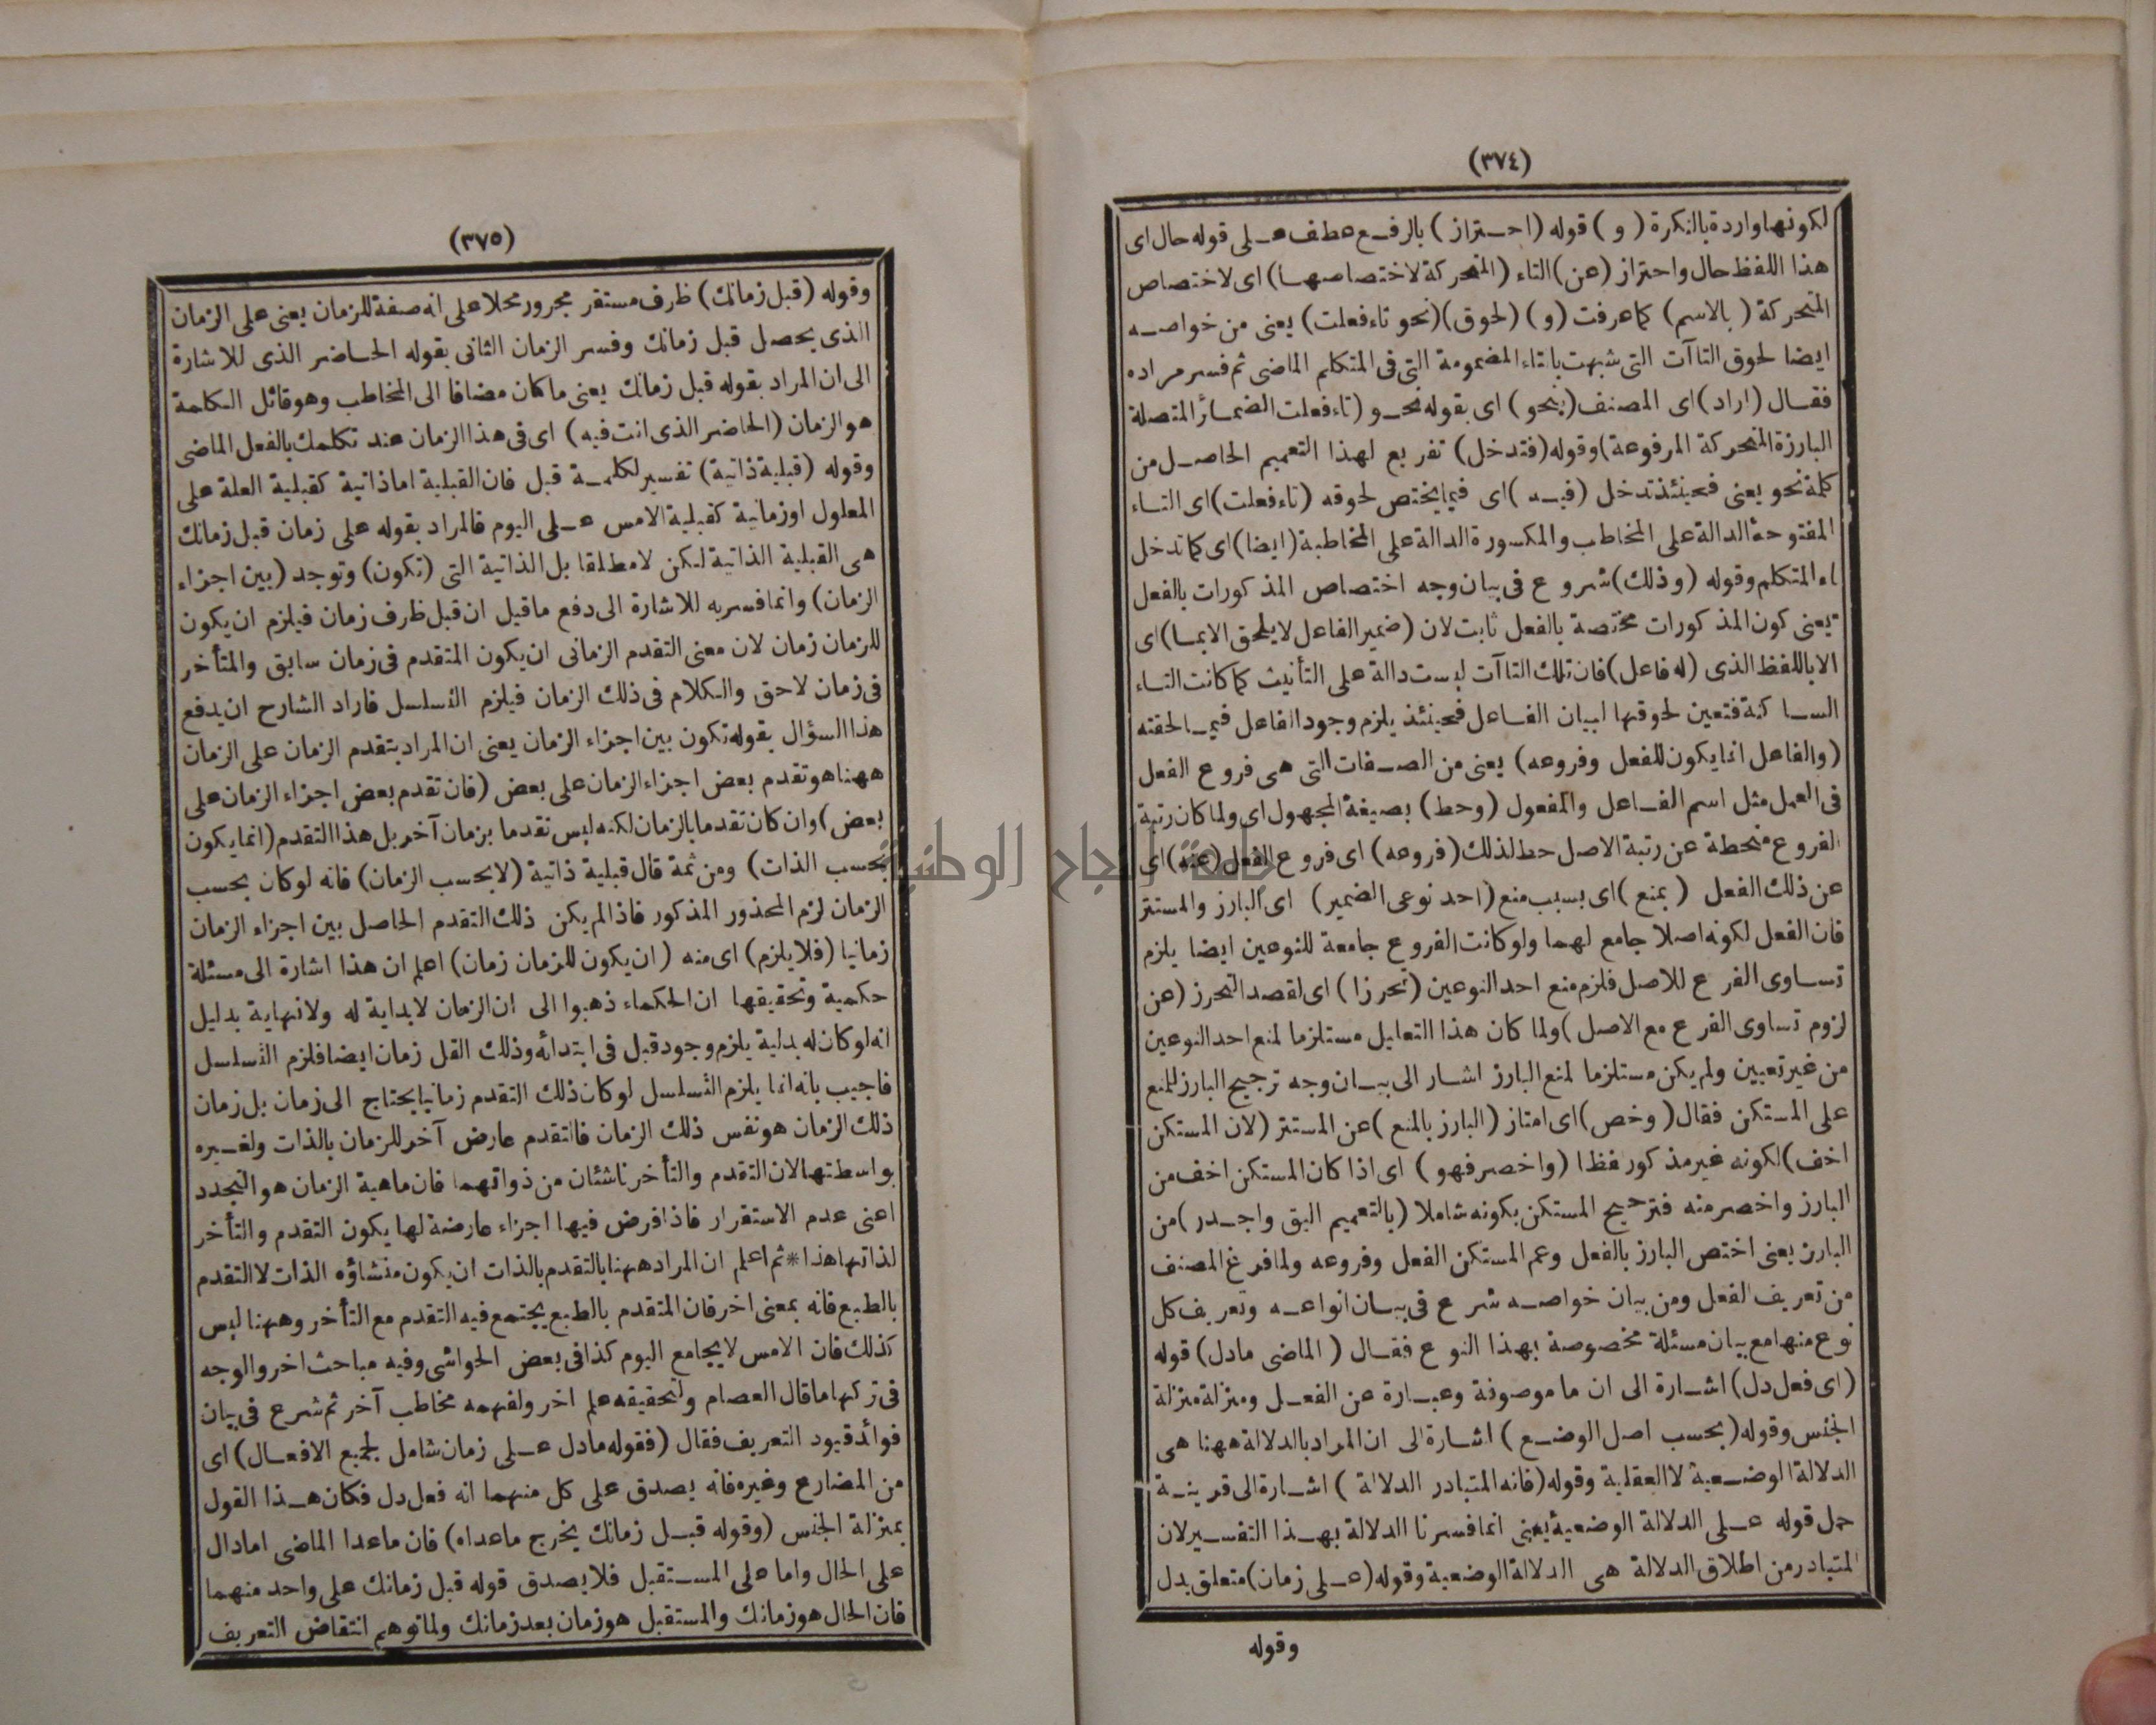 (٣٧٤)
لكونها واردة بالنكرة ( و ) قوله (احتراز ) بالرفع عطف على قوله حال اى
هذا اللفظ حال واحتراز (عن) التاء (المتحركة لاختصاصها) اى لاختصاص
المتحركة ( بالاسم) كما عرفت (و) (لحوق) (نحو تاء فعلت) يعنى من خواصه
ايضا لحوق التاآت التى شبهت بتاء المضمومة التى فى المتكلم الماضى ثم فسر مراده
فقال (اراد) اى المصنف (بنحو) اى بقوله نحو (تاء فعلت الضمائر المتصلة
البارزة المتحركة المرفوعة) وقوله (فتدخل) تفريع لهذا التعميم الحاصل من
كلمة نحو يعنى فحينئذ تدخل (فيه ) اى فيما يختص لحوقه (تاء فعلت) اى التاء
المفتوحة الدالة على المخاطب والمكسورة الدالة على المخاطبة (ايضا) اى كما تدخل
اء المتكلم وقوله (وذلك) شروع فى بيان وجه اختصاص المذكورات بالفعل
يعنى كون المذكورات مختصة بالفعل ثابت لان (ضمير الفاعل لا يلحق الا بما) اى
الا باللفظ الذى (له فاعل) فان تلك التاآت ليست دالة على التأنيث كما كانت التاء
الساكنة فتعين لحوقها لبيان الفاعل فحينئذ يلزم وجود الفاعل فيما لحقته
(والفاعل انما يكون للفعل وفروعه) يعنى من الصفات التى هى فروع الفعل
فى العمل مثل اسم الفاعل والمفعول (وحط) بصيغة المجهول اى ولما كان رتبة
الفروع منحطة عن رتبة الاصل حط لذلك (فروعه) اى فروع الفعل (عنه) اى
عن ذلك الفعل ( بمنع ) اى بسبب منع (احد نوعى الضمير) اى البارز والمستتر
فان الفعل لكونه اصلا جامع لهما ولو كانت الفروع جامعة للنوعين ايضا يلزم
تساوى الفرع للاصل فلزم منع احد النوعين (تحرزا ) اى لقصد التحرز (عن
لزوم تساوى الفرع مع الاصل ) ولما كان هذا التعليل مستلزما لمنع احد النوعين
من غير تعيين ولم يكن مستلزما لمنع البارز اشار الى بيان وجه ترجيح البارز للمنع
على المستكن فقال ( وخص ) اى امتاز (البارز بالمنع ) عن المستتر (لان المستكن
اخف) لكونه غير مذكور لفظا (واخصر فهو ) اى اذا كان المستكن اخف من
البارز واخصر منه فترجيح المستكن بكونه شاملا (بالتعميم اليق واجدر ) من
البارز يعنى اختص البارز بالفعل وعم المستكن الفعل وفروعه ولما فرغ المصنف
من تعريف الفعل ومن بيان خواصه شرع فى بيان انواعه وتعريف كل
نوع منها مع بيان مسئلة مخصوصة بهذا النوع فقال ( الماضى مادل) قوله
(اى فعل دل) اشارة الى ان ما موصوفة وعبارة عن الفعل ومنزلة منزلة
الجنس وقوله (بحسب اصل الوضع ) اشارة الى ان المراد بالدلالة ههنا هى
الدلالة الوضعية لا العقلية وقوله (فانه المتبادر الدلالة ) اشارة الى قرينة
حمل قوله على الدلالة الوضعية يعنى انما فسرنا الدلالة بهذا التفسير لان
المتبادر من اطلاق الدلالة هى الدلالة الوضعية وقوله (على زمان) متعلق بدل
وقوله
(٣٧٥)
وقوله (قبل زمانك) ظرف مستقر مجرور محلا على انه صفة للزمان يعنى على الزمان
الذى يحصل قبل زمانك وفسر الزمان الثانى بقوله الحاضر الذى للاشارة
الى ان المراد بقوله قبل زمانك يعنى ما كان مضافا الى المخاطب وهو قائل الكلمة
هو الزمان (الحاضر الذى انت فيه) اى فى هذا الزمان عند تكلمك بالفعل الماضى
وقوله (قبلية ذاتية) تفسير لكلمة قبل فان القبلية اما ذاتية كقبلية العلة على
المعلول او زمانية كقبلية الامس على اليوم فالمراد بقوله على زمان قبل زمانك
هى القبلية الذاتية لكن لا مطلقا بل الذاتية التى (تكون) وتوجد (بين اجزاء
الزمان) وانما فسر به للاشارة الى دفع ما قيل ان قبل ظرف زمان فيلزم ان يكون
للزمان زمان لان معنى التقدم الزمانى ان يكون المتقدم فى زمان سابق والمتأخر
فى زمان لاحق والكلام فى ذلك الزمان فيلزم التسلسل فاراد الشارح ان يدفع
هذا السؤال بقوله تكون بين اجزاء الزمان يعنى ان المراد بتقدم الزمان على الزمان
ههنا هو تقدم بعض اجزاء الزمان على بعض (فان تقدم بعض اجزاء الزمان على
بعض ) وان كان تقدما بالزمان لكنه ليس تقدما بزمان آخر بل هذا التقدم (انما يكون
بحسب الذات) ومن ثمة قال قبلية ذاتية (لا بحسب الزمان) فانه لو كان بحسب
الزمان لزم المحذور المذكور فاذا لم يكن ذلك التقدم الحاصل بين اجزاء الزمان
زمانيا (فلا يلزم) اى منه (ان يكون للزمان زمان) اعلم ان هذا اشارة الى مسئلة
حكمية وتحقيقها ان الحكماء ذهبوا الى ان الزمان لا بداية له ولا نهاية بدليل
انه لو كان له بداية يلزم وجود قبل فى ابتدائه وذلك القبل زمان ايضا فلزم التسلسل
فاجيب بانه انما يلزم التسلسل لو كان ذلك التقدم زمانيا يحتاج الى زمان بل زمان
ذلك الزمان هو نفس ذلك الزمان فالتقدم عارض آخر للزمان بالذات ولغيره
بواسطتها لان التقدم والتأخر ناشئان من ذواتهما فان ماهية الزمان هو التجدد
اعنى عدم الاستقرار فاذا فرض فيها اجزاء عارضة لها يكون التقدم والتأخر
لذاتها هذا * ثم اعلم ان المراد ههنا بالتقدم بالذات ان يكون منشاؤه الذات لا التقدم
بالطبع فانه بمعنى اخر فان المتقدم بالطبع يجتمع فيه التقدم مع التأخر وههنا ليس
كذلك فان الامس لا يجامع اليوم كذا فى بعض الحواشى وفيه مباحث اخر والوجه
فى تركها ما قال العصام ولتحقيقه علم اخر ولفهمه مخاطب آخر ثم شرع فى بيان
فوائد قيود التعريف فقال (فقوله مادل على زمان شامل لجميع الافعال) اى
من المضارع وغيره فانه يصدق على كل منهما انه فعل دل فكان هذا القول
بمنزلة الجنس (وقوله قبل زمانك يخرج ماعداه) فان ماعدا الماضى اما دال
على الحال واما على المستقبل فلا يصدق قوله قبل زمانك على واحد منهما
فان الحال هو زمانك والمستقبل هو زمان بعد زمانك ولما توهم انتقاض التعريف
جامعة النجاح الوطنية